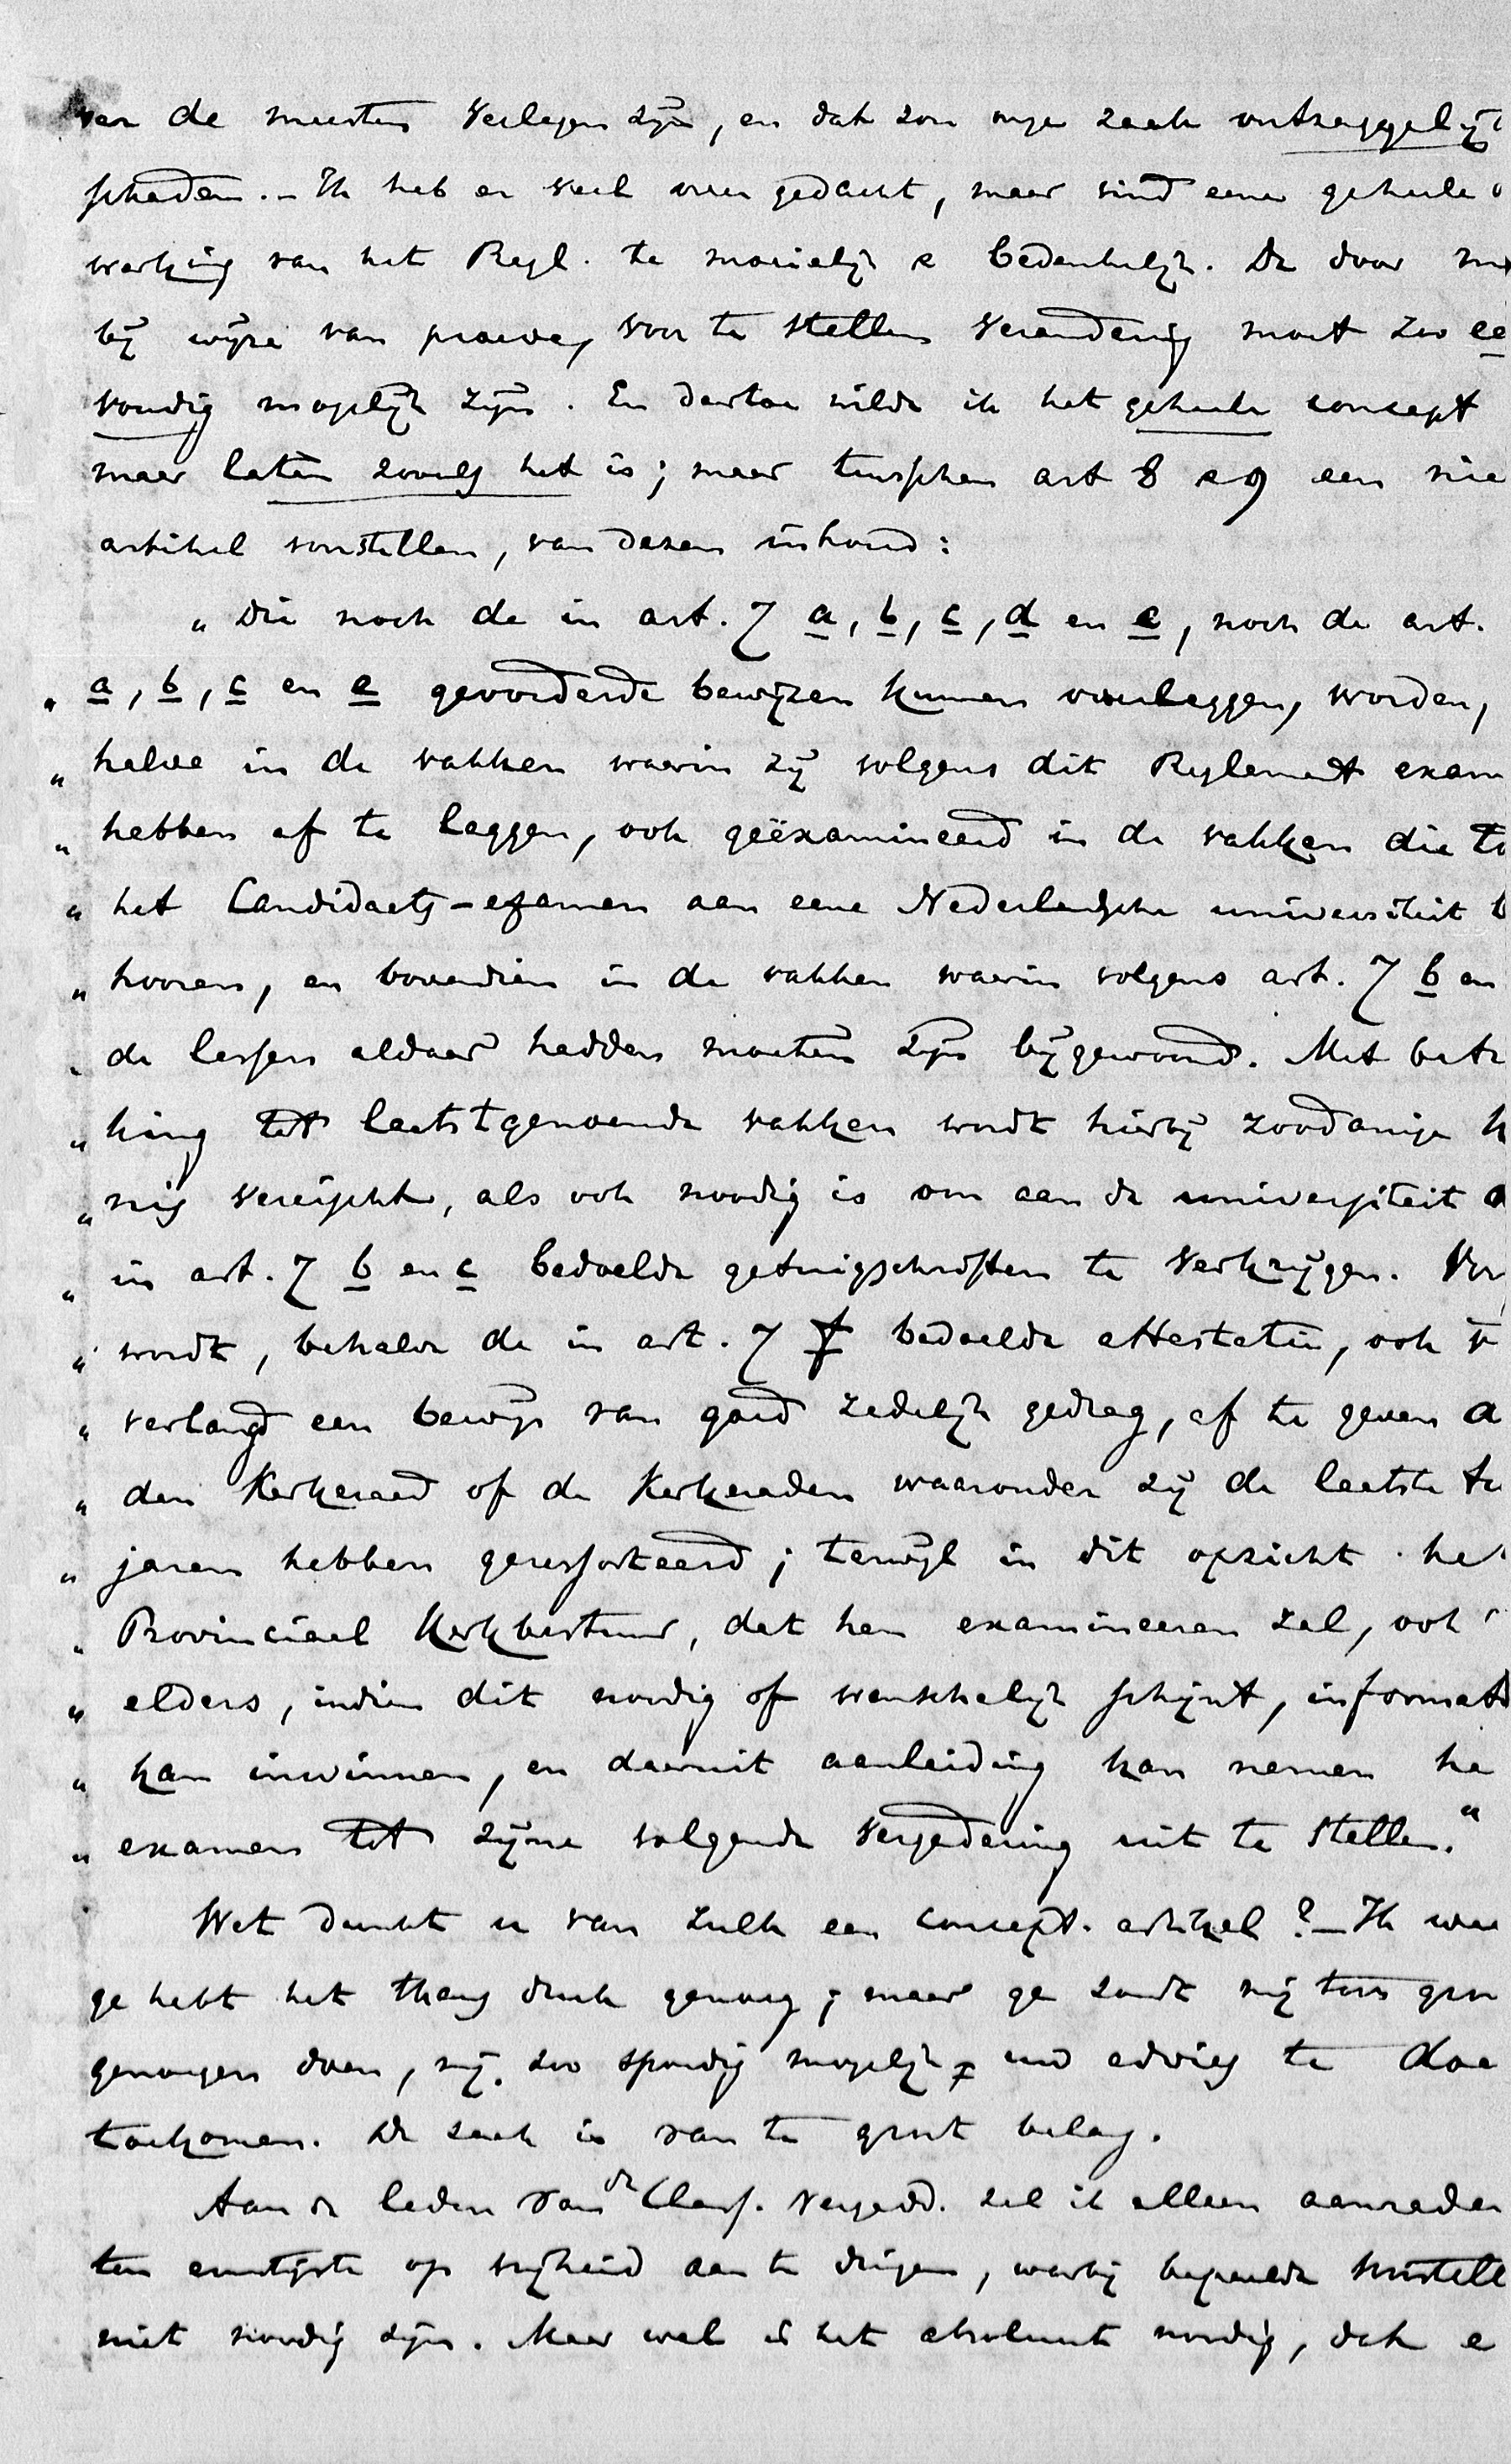 van de meesten verlegen zijn, en dat zou onze zaak ontzaggelijk
schaden. – Ik heb er veel over gedacht, maar vind eene geheele
werking van het Regl. te moeielijk en bedenkelijk. De door
bij wijze van proeve, voor te stellen verandering moet zoo ee
voudig mogelijk zijn. En daartoe wilde ik het geheele concept
maar laten zooals het is; maar tusschen art 8 en 9 een nie
artikel voorstellen, van dezen inhoud:
„ Die noch de in art. 7 a, b, c, d en e, noch de art.
„ a, b, c en e gevorderde bewijzen kunnen overleggen, worden,
„ halve in de vakken waarin zij volgens dit Reglement exam
„ hebben af te leggen, ook geëxamineerd in de vakken die to
„ het Candidaats-examen aan eene Nederlandsche universiteit b
„ hooren, en bovendien in de vakken waarin volgens art. 7 b en
„ de lessen aldaar hadden moeten zijn bijgewoond. Met betr
„ king tot laatstgenoemde vakken wordt hierbij zoodanige k
„ nis vereischt, als ook noodig is om aan de universiteit d
„ in art. 7 b en c bedoelde getuigschriften te verkrijgen. Vor
„ wordt, behalve de in art. 7 f bedoelde attestatie, ook v
„ verlangd een bewijs van goed zedelijk gedrag, af te geven a
„ den Kerkeraad of de Kerkeraden waaronder zij de laatste tw
„ jaren hebben geressorteerd; terwijl in dit opzicht he
„ Provinciaal Kerkbestuur, dat hen examineeren zal, ook
„ elders, indien dit noodig of wenschelijk schijnt, informati
„ kan inwinnen, en daaruit aanleiding kan nemen he
„ examen tot zijne volgende vergadering uit te stellen.“
Wat dunkt u van zulk een concept-artikel? – Ik wee
ge hebt het thans druk genoeg; maar ge zoudt mij toch groo
genoegen doen, mij zoo spoedig mogelijk uw advies te doe
toekomen. De zaak is van te groot belang.
Aan de leden van de Class. Vergadd. zal ik alleen aanraden
ten ernstigste op vrijheid aan te dringen, waarbij bepaalde voorstell
niet noodig zijn. Maar wel is het absoluut noodig, dat e